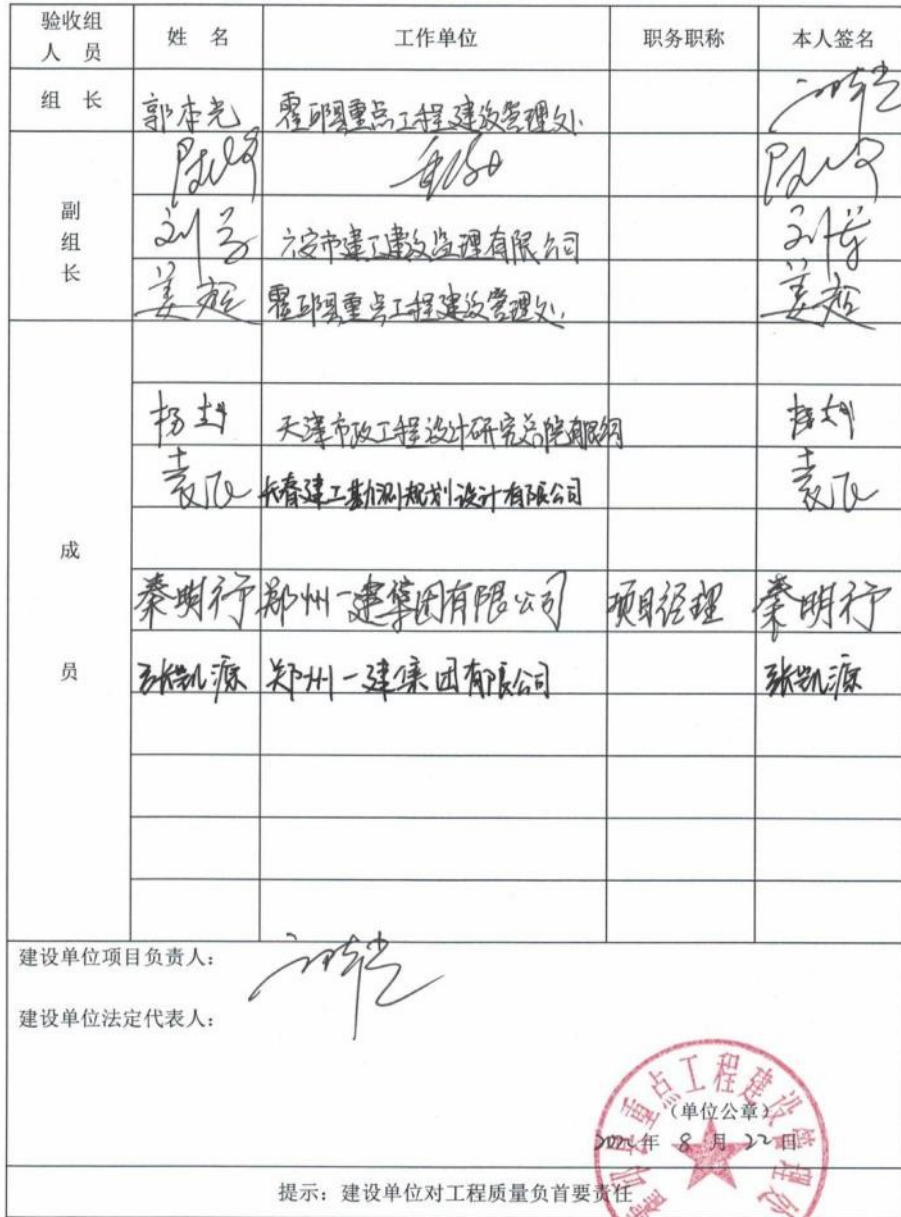 验收组
人 员
姓 名
工作单位
职务职称
本人签名
组 长
郭本光
霍邱县重点工程建设管理处
副
组
长
六安市建工建设监理有限公司
霍邱县重点工程建设管理处
成
员
天津市政工程设计研究总院有限公司
袁飞
长春建工勘测规划设计有限公司
袁飞
秦明行
郑州一建集团有限公司
项目经理
秦明行
张凯源
郑州一建集团有限公司
张凯源
建设单位项目负责人：
建设单位法定代表人：
重点工程建设管理
（单位公章）
2022年 8 月 22 日
提示：建设单位对工程质量负首要责任